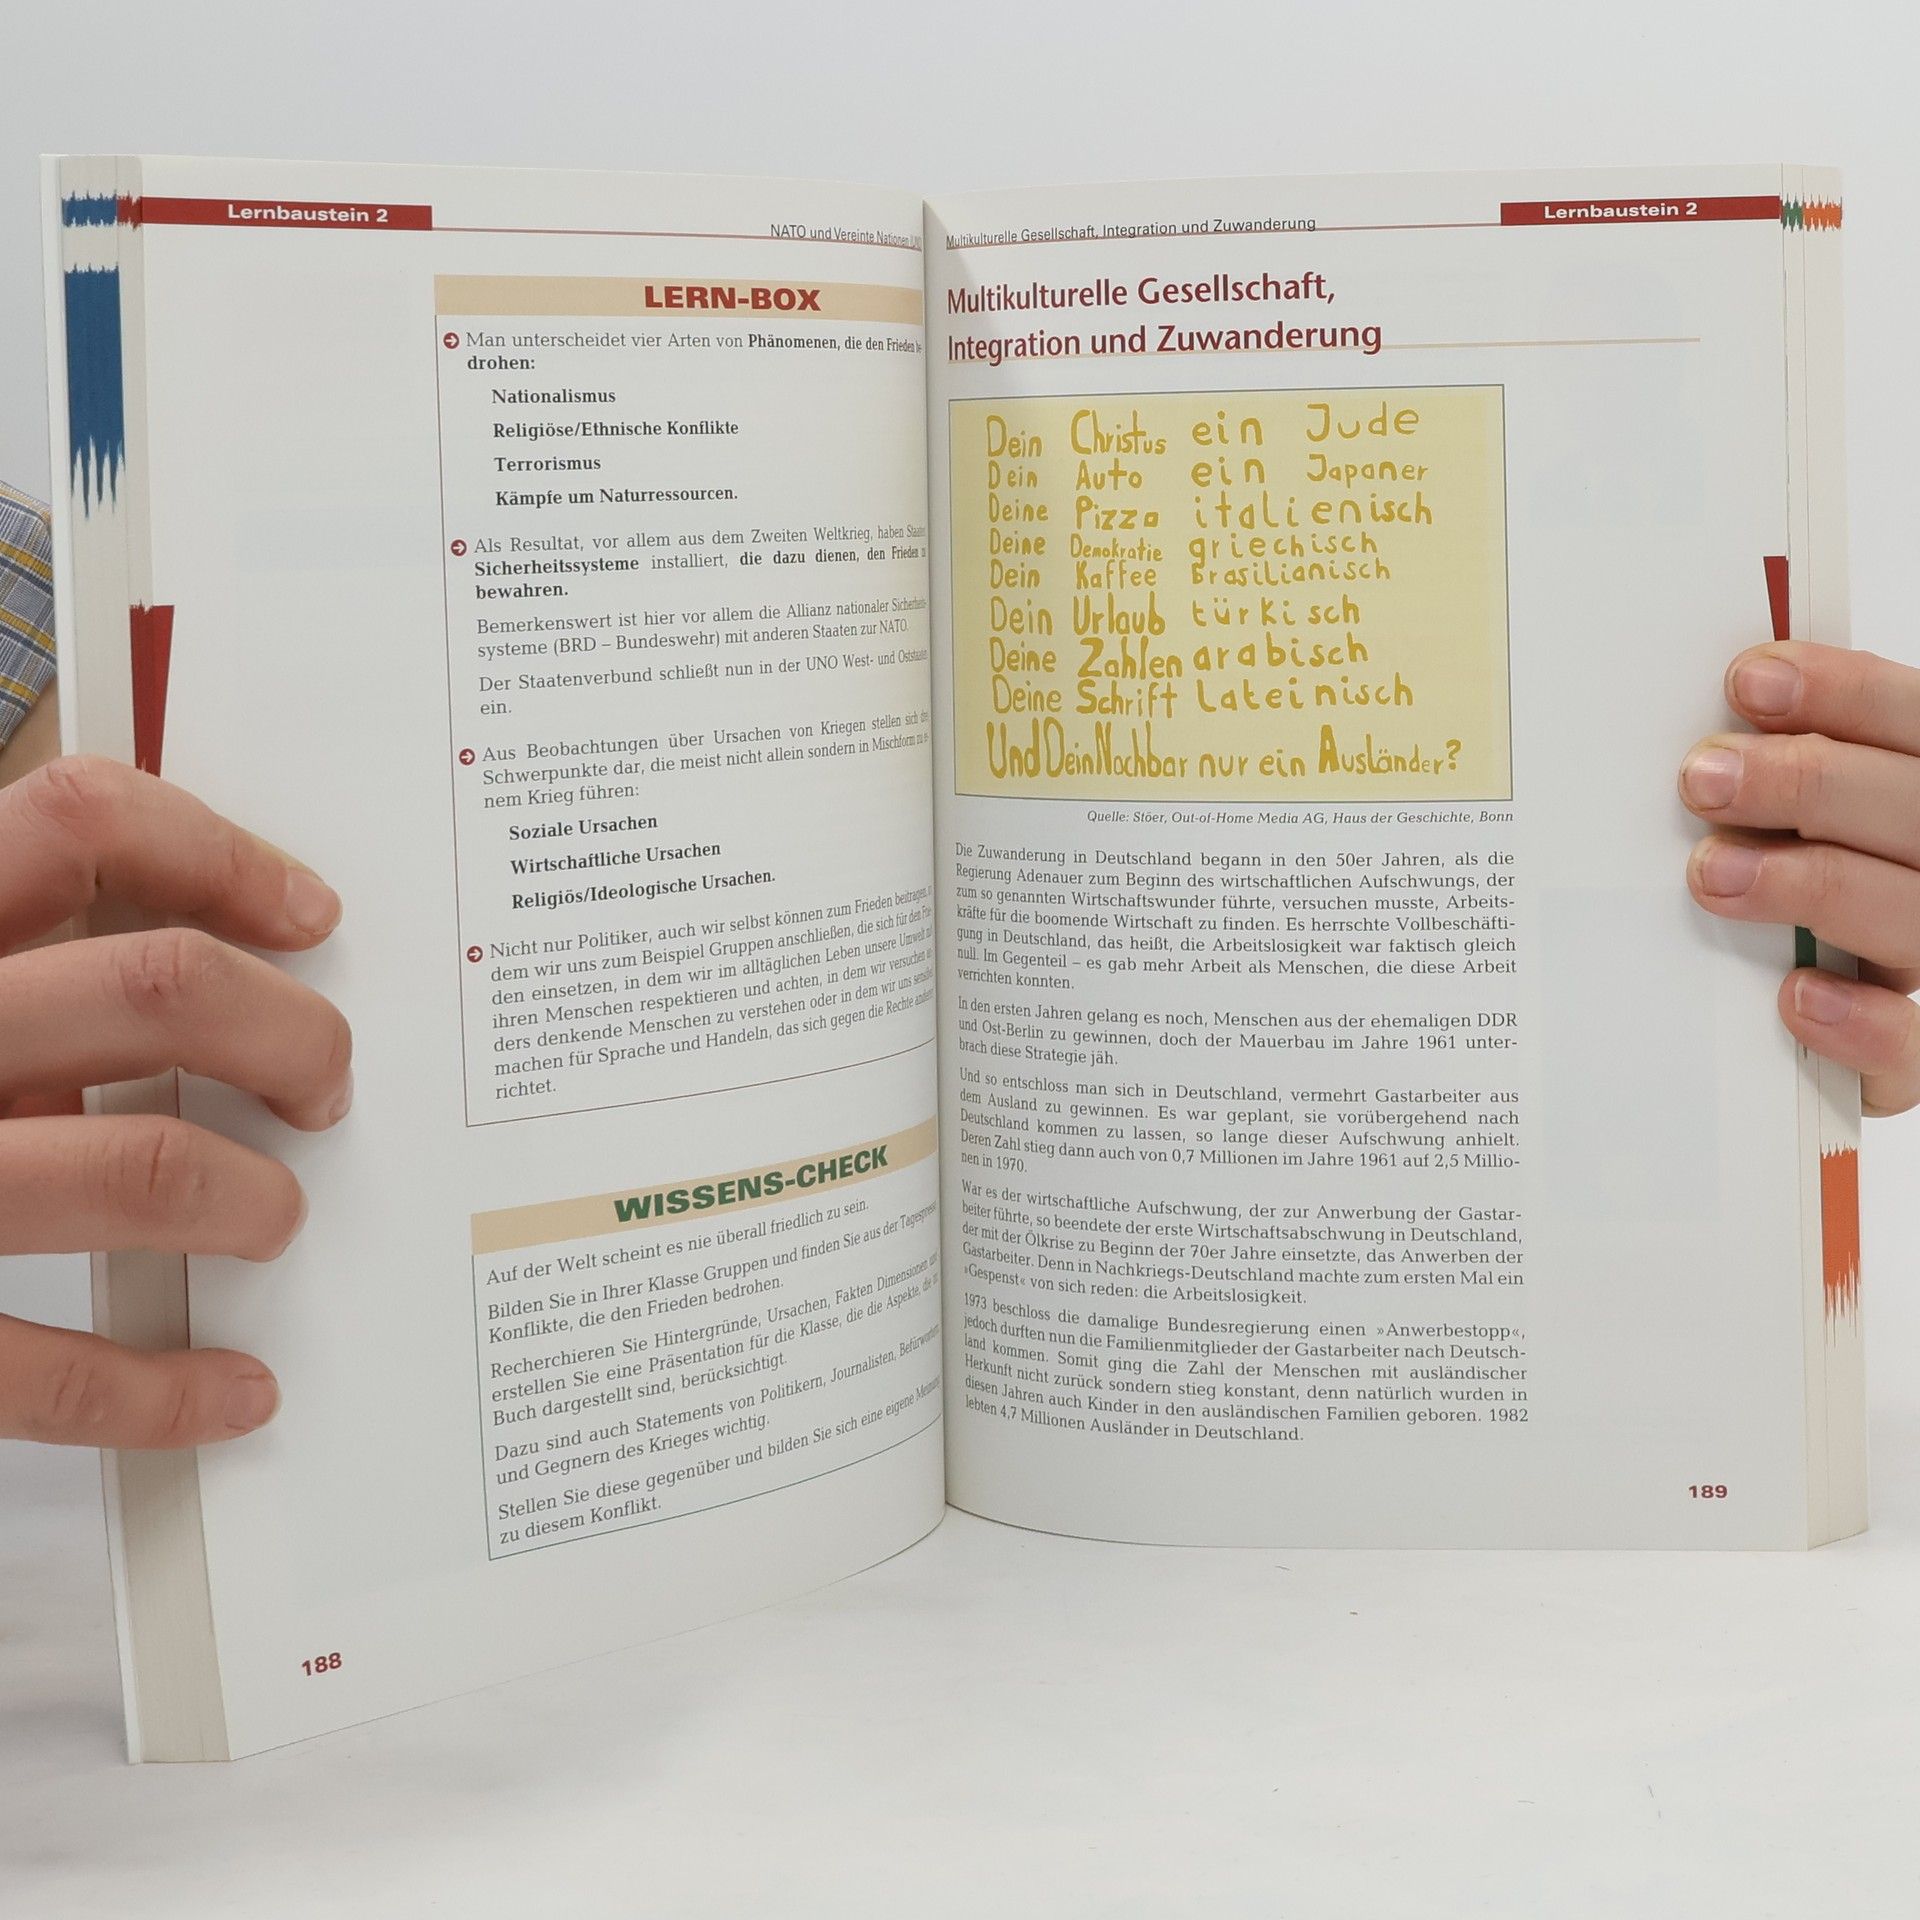 Lernbaustein 2
NATO und Vereinte Nationen (UNO)
LERN-BOX
Man unterscheidet vier Arten von Phänomenen, die den Frieden be-
drohen:
Nationalismus
Religiöse/Ethnische Konflikte
Terrorismus
Kämpfe um Naturressourcen.
Als Resultat, vor allem aus dem Zweiten Weltkrieg, haben Staaten
Sicherheitssysteme installiert, die dazu dienen, den Frieden zu
bewahren.
Bemerkenswert ist hier vor allem die Allianz nationaler Sicherheits-
systeme (BRD – Bundeswehr) mit anderen Staaten zur NATO.
Der Staatenverbund schließt nun in der UNO West- und Oststaaten
ein.
Aus Beobachtungen über Ursachen von Kriegen stellen sich drei
Schwerpunkte dar, die meist nicht allein sondern in Mischform zu ei-
nem Krieg führen:
Soziale Ursachen
Wirtschaftliche Ursachen
Religiös/Ideologische Ursachen.
Nicht nur Politiker, auch wir selbst können zum Frieden beitragen, in
dem wir uns zum Beispiel Gruppen anschließen, die sich für den Frie-
den einsetzen, in dem wir im alltäglichen Leben unsere Umwelt mit
ihren Menschen respektieren und achten, in dem wir versuchen an-
ders denkende Menschen zu verstehen oder in dem wir uns sensibel
machen für Sprache und Handeln, das sich gegen die Rechte anderer
richtet.
WISSENS-CHECK
Auf der Welt scheint es nie überall friedlich zu sein.
Bilden Sie in Ihrer Klasse Gruppen und finden Sie aus der Tagespresse
Konflikte, die den Frieden bedrohen.
Recherchieren Sie Hintergründe, Ursachen, Fakten Dimensionen und
erstellen Sie eine Präsentation für die Klasse, die die Aspekte, die im
Buch dargestellt sind, berücksichtigt.
Dazu sind auch Statements von Politikern, Journalisten, Befürwortern
und Gegnern des Krieges wichtig.
Stellen Sie diese gegenüber und bilden Sie sich eine eigene Meinung
zu diesem Konflikt.
188
Multikulturelle Gesellschaft, Integration und Zuwanderung
Lernbaustein 2
Multikulturelle Gesellschaft,
Integration und Zuwanderung
Dein Christus ein Jude
Dein Auto ein Japaner
Deine Pizza italienisch
Deine Demokratie griechisch
Dein Kaffee Brasilianisch
Dein Urlaub türkisch
Deine Zahlen arabisch
Deine Schrift Lateinisch
Und Dein Nachbar nur ein Ausländer?
Quelle: Stöer, Out-of-Home Media AG, Haus der Geschichte, Bonn
Die Zuwanderung in Deutschland begann in den 50er Jahren, als die
Regierung Adenauer zum Beginn des wirtschaftlichen Aufschwungs, der
zum so genannten Wirtschaftswunder führte, versuchen musste, Arbeits-
kräfte für die boomende Wirtschaft zu finden. Es herrschte Vollbeschäfti-
gung in Deutschland, das heißt, die Arbeitslosigkeit war faktisch gleich
null. Im Gegenteil – es gab mehr Arbeit als Menschen, die diese Arbeit
verrichten konnten.
In den ersten Jahren gelang es noch, Menschen aus der ehemaligen DDR
und Ost-Berlin zu gewinnen, doch der Mauerbau im Jahre 1961 unter-
brach diese Strategie jäh.
Und so entschloss man sich in Deutschland, vermehrt Gastarbeiter aus
dem Ausland zu gewinnen. Es war geplant, sie vorübergehend nach
Deutschland kommen zu lassen, so lange dieser Aufschwung anhielt.
Deren Zahl stieg dann auch von 0,7 Millionen im Jahre 1961 auf 2,5 Millio-
nen in 1970.
War es der wirtschaftliche Aufschwung, der zur Anwerbung der Gastar-
beiter führte, so beendete der erste Wirtschaftsabschwung in Deutschland,
der mit der Ölkrise zu Beginn der 70er Jahre einsetzte, das Anwerben der
Gastarbeiter. Denn in Nachkriegs-Deutschland machte zum ersten Mal ein
»Gespenst« von sich reden: die Arbeitslosigkeit.
1973 beschloss die damalige Bundesregierung einen »Anwerbestopp«,
jedoch durften nun die Familienmitglieder der Gastarbeiter nach Deutsch-
land kommen. Somit ging die Zahl der Menschen mit ausländischer
Herkunft nicht zurück sondern stieg konstant, denn natürlich wurden in
diesen Jahren auch Kinder in den ausländischen Familien geboren. 1982
lebten 4,7 Millionen Ausländer in Deutschland.
189